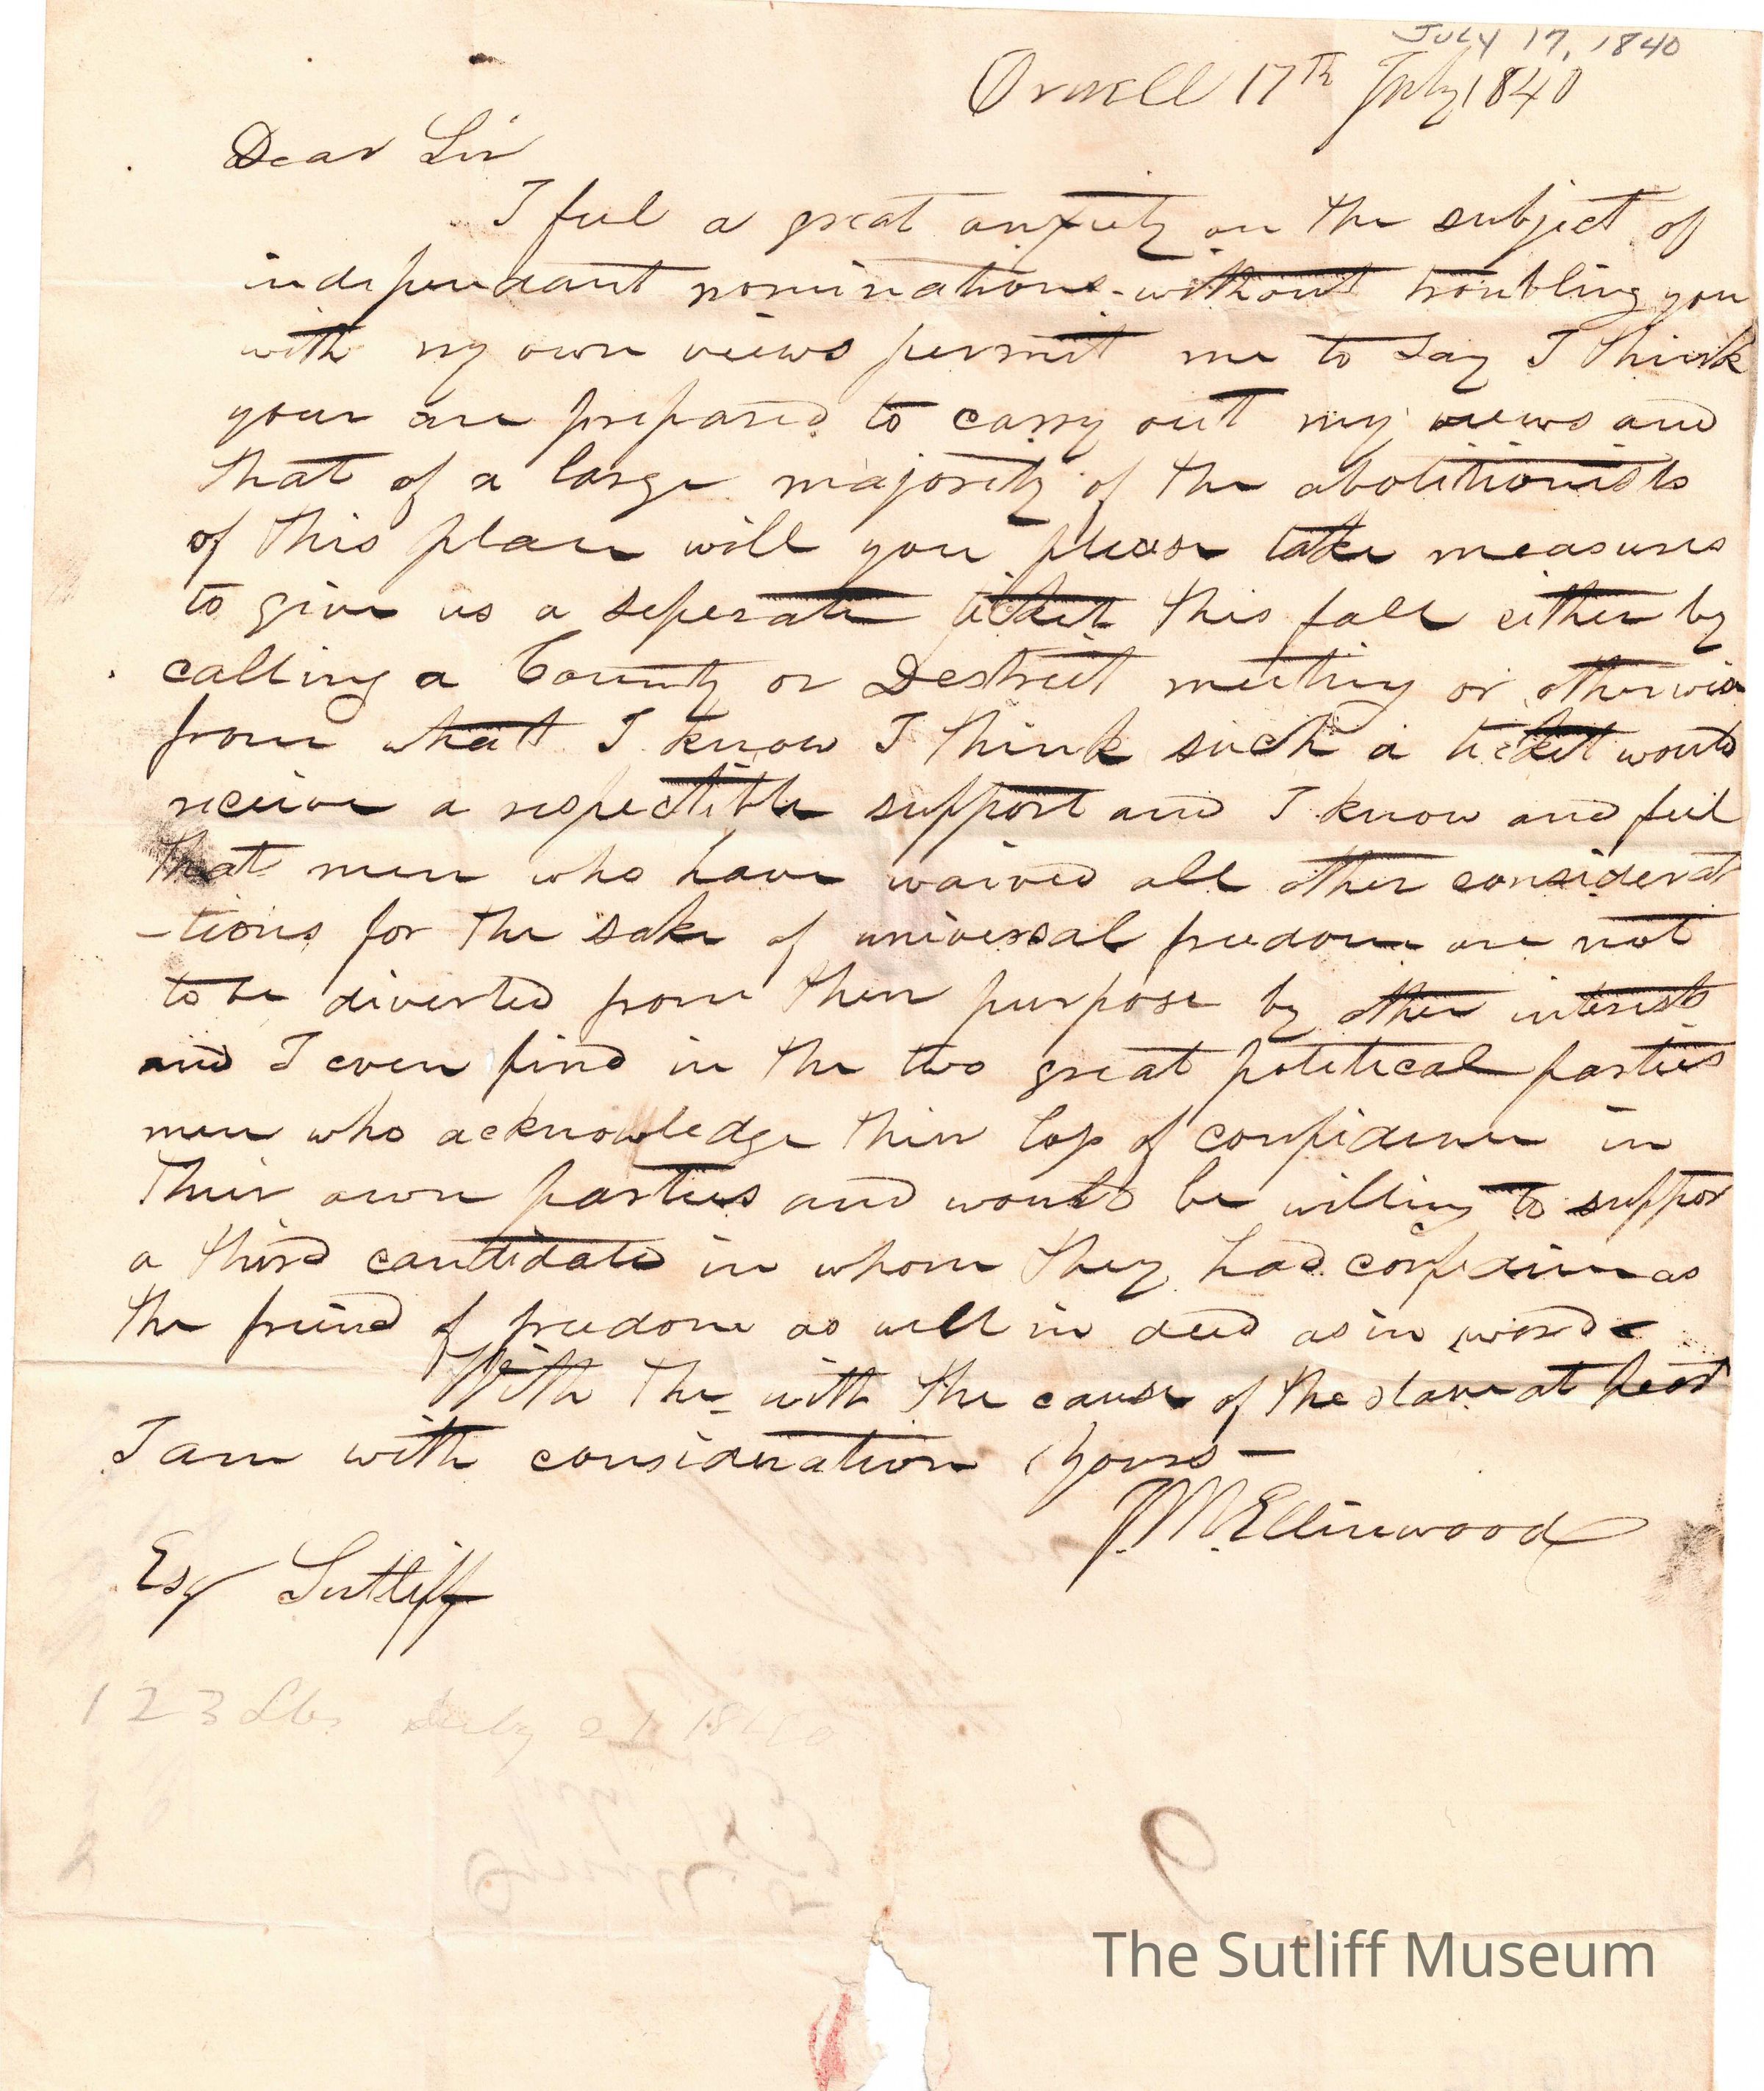 JULY 17, 1840
Orwell 17th July 1840
Dear Sir
I feel a great anxiety on the subject of
independant nominations - without troubling you
with my own views permit me to say I think
your are prepared to carry out my views and
that of a large majority of the abolitionists
of this place will you please take measures
to give us a seperate ticket this fall either by
calling a County or Destrict meeting or otherwise
from what I know I think such a ticket would
receive a respectible support and I know and feel
that men who have waived all other considerat
-tions for the sake of universal freedom are not
to be diverted from their purpose by other interests
and I even find in the two great political parties
men who acknowledge their loss of confidence in
their own parties and would be willing to suppor
a third candidate in whom they had confidence as
the friend of freedom as well in deed as in word -
With the with the cause of the slave at heart
I am with consideration yours -
J.M. Ellinwood
Esq Sutliff
1 2 3 Lbs July 21 1840
The Sutliff Museum